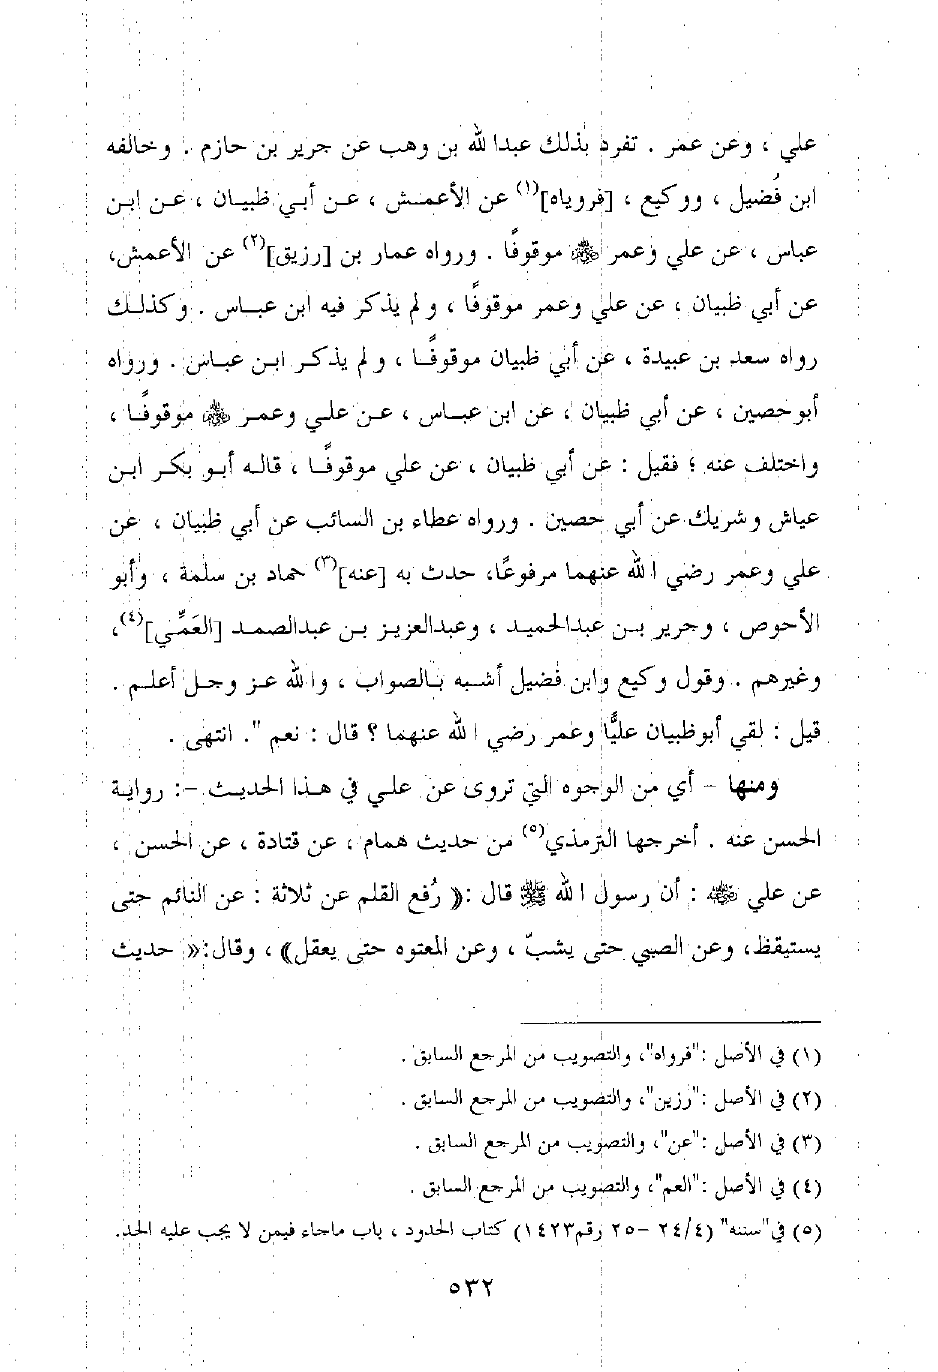 علي ، وعن عمر . تفرد بذلك عبدا لله بن وهب عن جرير بن حازم . وخالفه
ابن فُضيل ، ووكيع ، [فروياه](١) عن الأعمش ، عن أبي ظبيان ، عن ابن
عباس ، عن علي وعمر ﷺ موقوفًا . ورواه عمار بن [رزيق](٢) عن الأعمش،
عن أبي ظبيان ، عن علي وعمر موقوفًا ، و لم يذكر فيه ابن عباس . وكذلك
رواه سعد بن عبيدة ، عن أبي ظبيان موقوفًا ، و لم يذكر ابن عباس . ورواه
أبوحصين ، عن أبي ظبيان ، عن ابن عباس ، عن علي وعمر موقوفًا ،
واختلف عنه ؛ فقيل : عن أبي ظبيان ، عن علي موقوفًا ، قاله أبو بكر ابن
عياش وشريك عن أبي حصين . ورواه عطاء بن السائب عن أبي ظبيان ، عن
علي وعمر رضي ا لله عنهما مرفوعًا، حدث به [عنه](٣) حماد بن سلمة ، وأبو
الأحوص ، وجرير بن عبدالحميد ، وعبدالعزيز بن عبدالصمد [العَمِّي](٤)،
وغيرهم . وقول وكيع وابن فُضيل أشبه بالصواب ، وا لله عز وجل أعلم .
قيل : لقي أبوظبيان عليًّا وعمر رضي ا لله عنهما ؟ قال : نعم ". انتهى .
ومنها - أي من الوجوه التي تروى عن علي في هذا الحديث -: رواية
الحسن عنه . أخرجها الترمذي(٥) من حديث همام ، عن قتادة ، عن الحسن ،
عن علي : أن رسول ا لله ﷺ قال :« رُفع القلم عن ثلاثة : عن النائم حتى
يستيقظ، وعن الصبي حتى يشبّ ، وعن المعتوه حتى يعقل» ، وقال:« حديث
(١) في الأصل :"فرواه"، والتصويب من المرجع السابق .
(٢) في الأصل :"رزين"، والتصويب من المرجع السابق .
(٣) في الأصل :"عن"، والتصويب من المرجع السابق .
(٤) في الأصل :"العم"، والتصويب من المرجع السابق .
(٥) في"سننه" (٢٤/٤ -٢٥ رقم١٤٢٣) كتاب الحدود ، باب ماجاء فيمن لا يجب عليه الحد.
٥٣٢